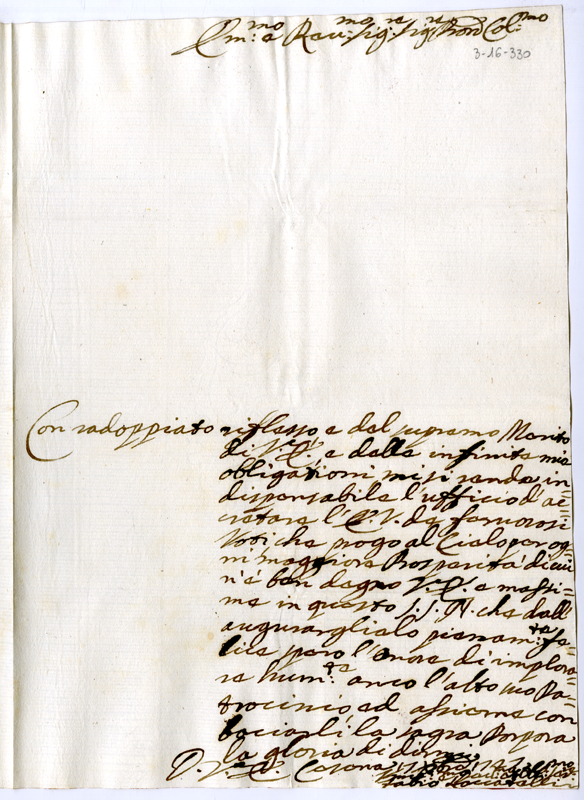 Em.mo e Rev.mo Sig.re Sig.re Pron Col.mo
3-16-330
Con radoppiato riflesso e del supremo Merito
di V.E. e delle infinite mie
obligationi mi si rende in=
dispensabile l'ufficio d'ac=
certare l'E.V. de fervorosi
Voti che prego al Cielo per og=
ni maggiore Prosperità di cui
n'è ben degno V.E. e massi=
me in questo S.S. N. che dall'
augurarglielo pienam.te fe=
lice spero l'onore di implora=
re hum.te anco l'alto suo Pa=
trocinio ed assieme con
baciarli la sagra Porpora
la gloria di dirmi
D. V.E. Cesena